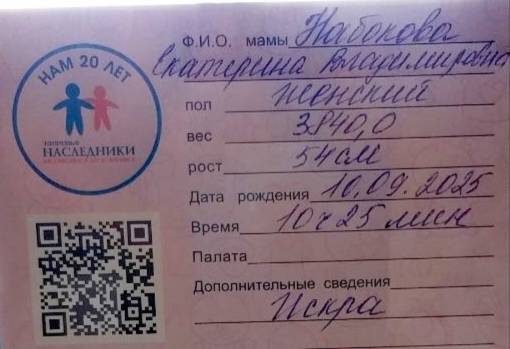 НАМ 20 ЛЕТ
НАСЛЕДНИКИ
Ф.И.О. мамы Набокова
Екатерина Владимировна
пол женский
вес 3840,0
рост 54см
Дата рождения 10.09.2025
Время 10ч 25 мин
Палата
Дополнительные сведения
Искра